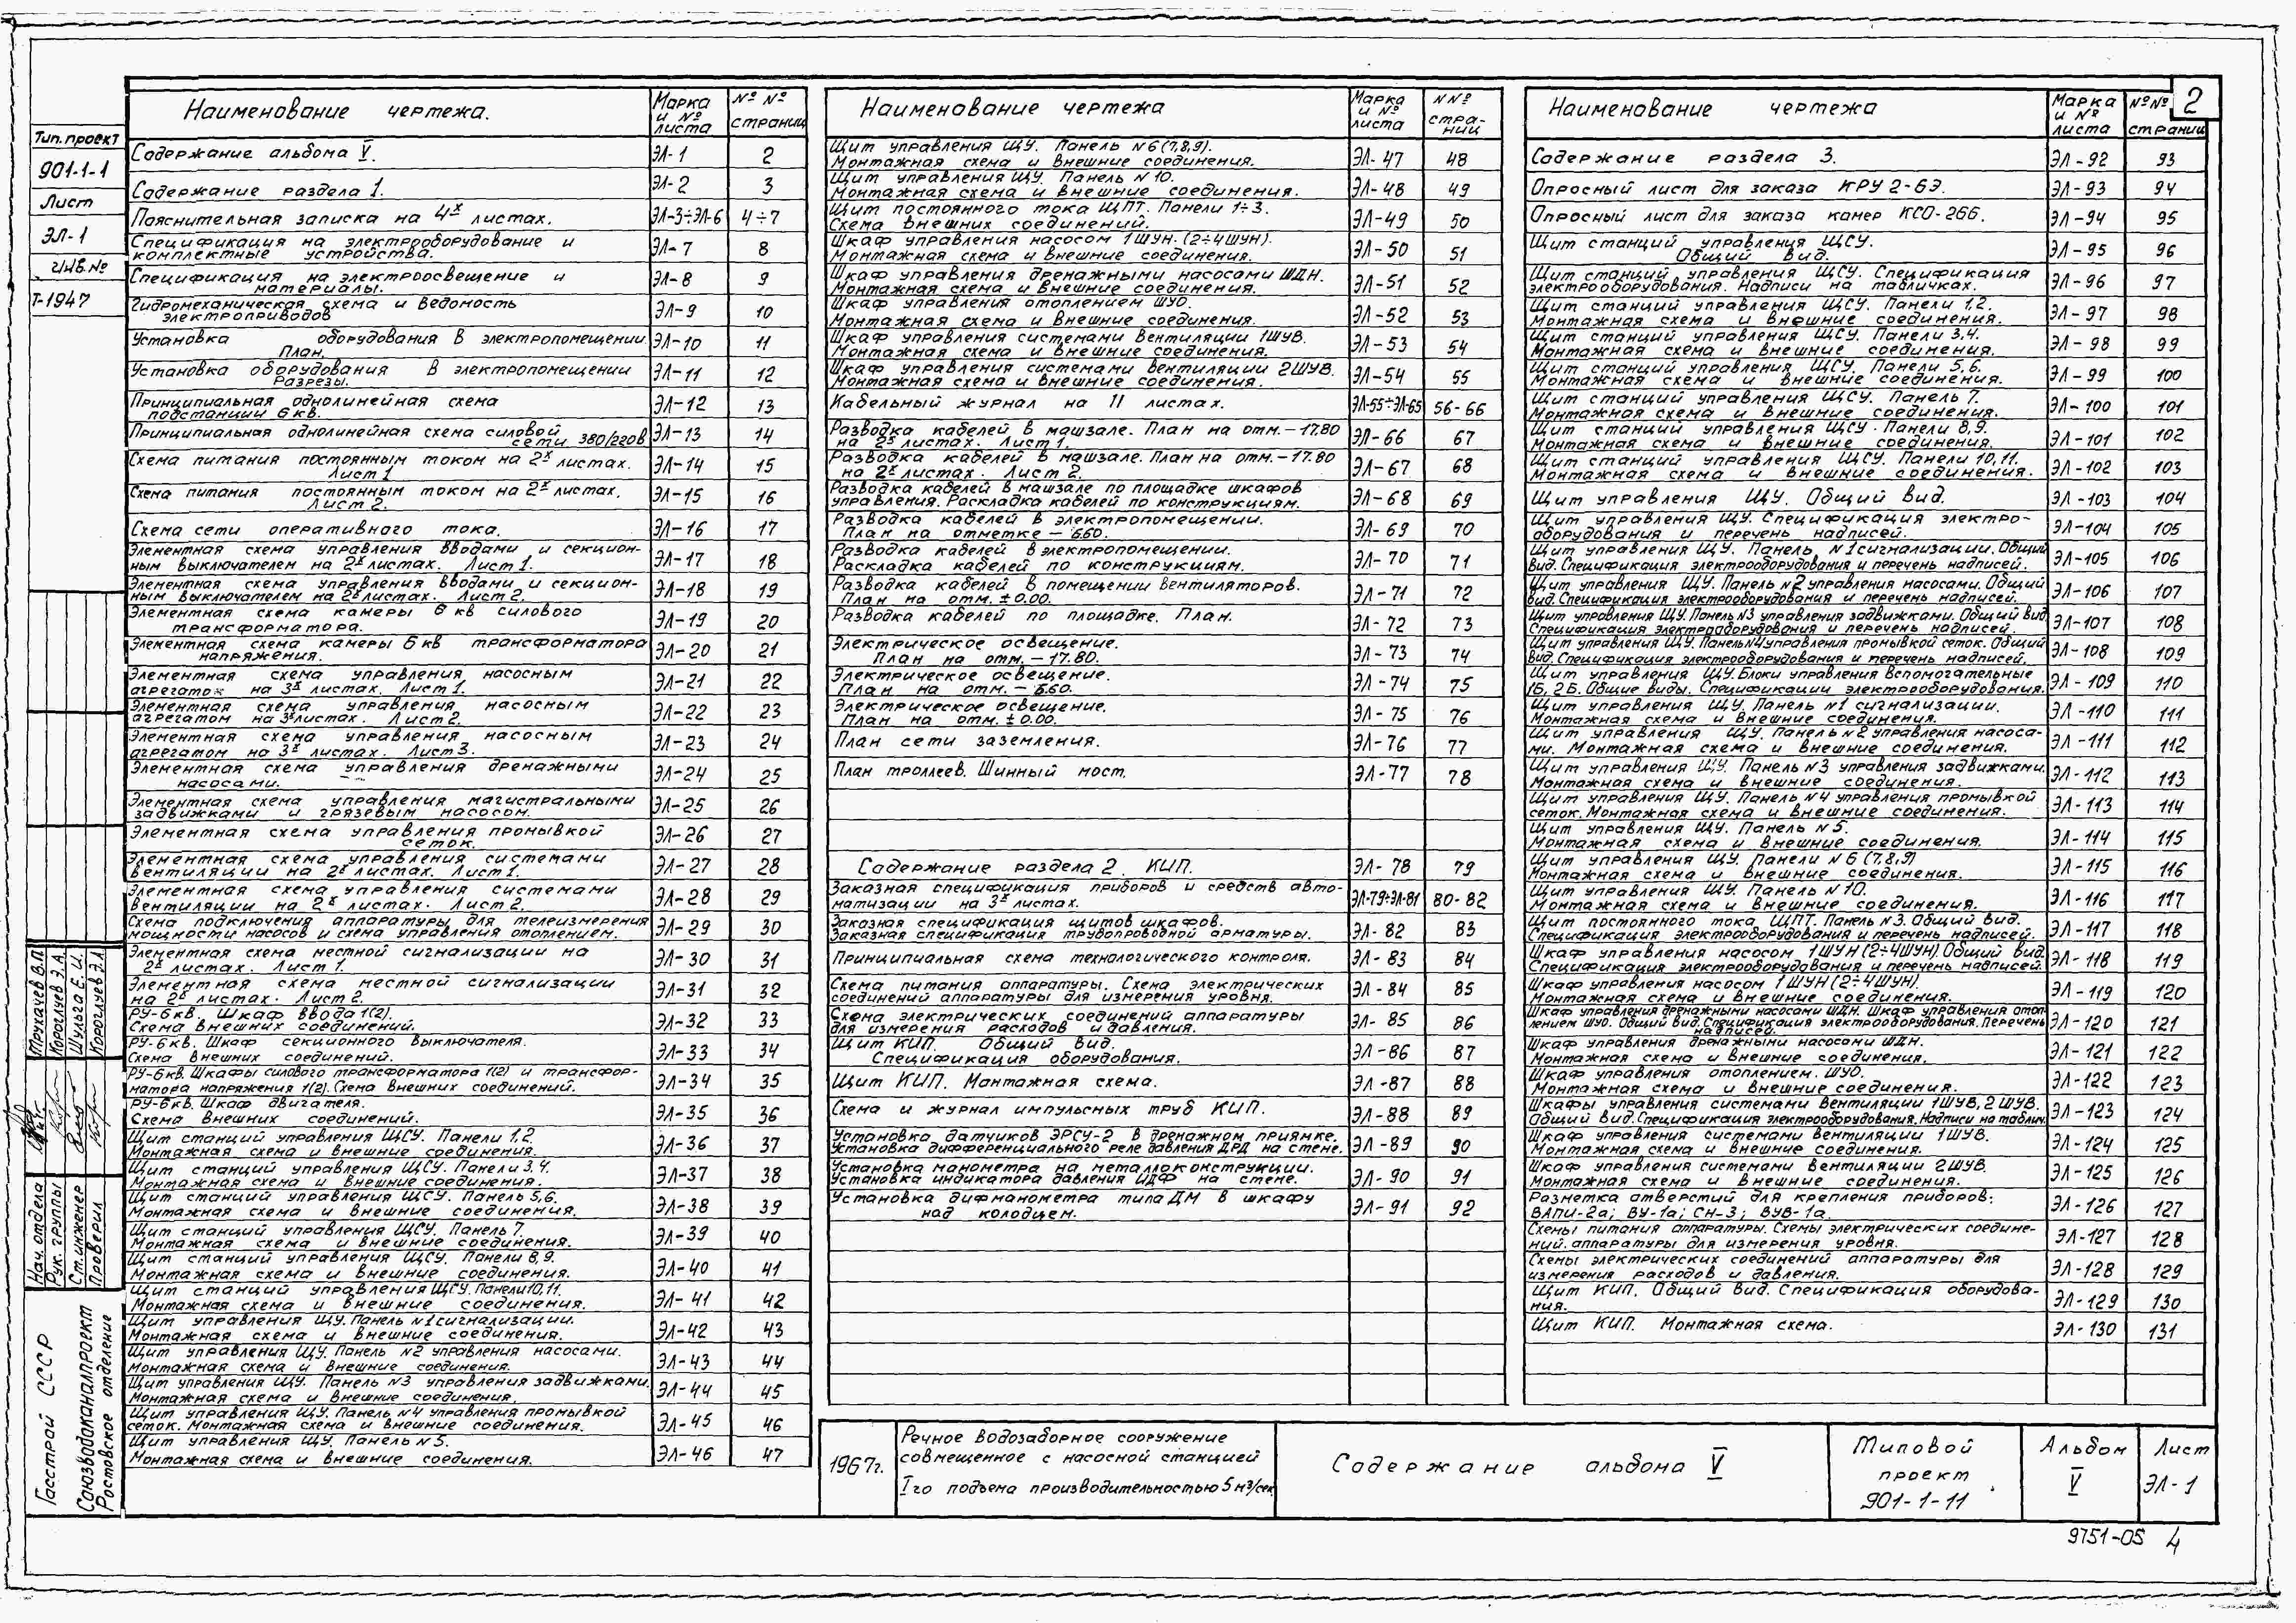 2
Тип. проект
901-1-1
Лист
ЭЛ-1
Инв. №
Т-1947
Наименование чертежа. Марка и № листа №№ страниц
Содержание альбома V. ЭЛ-1 2
Содержание раздела 1. ЭЛ-2 3
Пояснительная записка на 4х листах. ЭЛ-3÷ЭЛ-6 4÷7
Спецификация на электрооборудование и
комплектные устройства. ЭЛ-7 8
Спецификация на электроосвещение и
материалы. ЭЛ-8 9
Гидромеханическая схема и ведомость
электроприводов ЭЛ-9 10
Установка оборудования в электропомещении.
План. ЭЛ-10 11
Установка оборудования в электропомещении
Разрезы. ЭЛ-11 12
Принципиальная однолинейная схема
подстанции 6 кв. ЭЛ-12 13
Принципиальная однолинейная схема силовой
сети 380/220в ЭЛ-13 14
Схема питания постоянным током на 2х листах.
Лист 1 ЭЛ-14 15
Схема питания постоянным током на 2х листах.
Лист 2. ЭЛ-15 16
Схема сети оперативного тока. ЭЛ-16 17
Элементная схема управления вводами и секцион-
ным выключателем на 2х листах. Лист 1. ЭЛ-17 18
Элементная схема управления вводами и секцион-
ным выключателем на 2х листах. Лист 2. ЭЛ-18 19
Элементная схема камеры 6 кв силового
трансформатора. ЭЛ-19 20
Элементная схема камеры 6 кв трансформатора
напряжения. ЭЛ-20 21
Элементная схема управления насосным
агрегатом на 3х листах. Лист 1. ЭЛ-21 22
Элементная схема управления насосным
агрегатом на 3х листах. Лист 2. ЭЛ-22 23
Элементная схема управления насосным
агрегатом на 3х листах. Лист 3. ЭЛ-23 24
Элементная схема управления дренажными
насосами. ЭЛ-24 25
Элементная схема управления магистральными
задвижками и грязевым насосом. ЭЛ-25 26
Элементная схема управления промывкой
сеток. ЭЛ-26 27
Элементная схема управления системами
вентиляции на 2х листах. Лист 1. ЭЛ-27 28
Элементная схема управления системами
вентиляции на 2х листах. Лист 2. ЭЛ-28 29
Схема подключения аппаратуры для телеизмерения
мощности насосов и схема управления отоплением. ЭЛ-29 30
Элементная схема местной сигнализации на
2х листах. Лист 1. ЭЛ-30 31
Элементная схема местной сигнализации
на 2х листах. Лист 2. ЭЛ-31 32
РУ-6кв. Шкаф ввода 1(2).
Схема внешних соединений. ЭЛ-32 33
РУ-6кв. Шкаф секционного выключателя.
Схема внешних соединений. ЭЛ-33 34
РУ-6кв. Шкафы силового трансформатора 1(2) и трансфор-
матора напряжения 1(2). Схема внешних соединений. ЭЛ-34 35
РУ-6кв. Шкаф двигателя.
Схема внешних соединений. ЭЛ-35 36
Щит станций управления ЩСУ. Панели 1,2.
Монтажная схема и внешние соединения. ЭЛ-36 37
Щит станций управления ЩСУ. Панели 3,4.
Монтажная схема и внешние соединения. ЭЛ-37 38
Щит станций управления ЩСУ. Панель 5,6.
Монтажная схема и внешние соединения. ЭЛ-38 39
Щит станций управления ЩСУ. Панель 7.
Монтажная схема и внешние соединения. ЭЛ-39 40
Щит станций управления ЩСУ. Панели 8,9.
Монтажная схема и внешние соединения. ЭЛ-40 41
Щит станций управления ЩСУ. Панели 10,11.
Монтажная схема и внешние соединения. ЭЛ-41 42
Щит управления ЩУ. Панель №1 сигнализации.
Монтажная схема и внешние соединения. ЭЛ-42 43
Щит управления ЩУ. Панель №2 управления насосами.
Монтажная схема и внешние соединения. ЭЛ-43 44
Щит управления ЩУ. Панель №3 управления задвижками.
Монтажная схема и внешние соединения. ЭЛ-44 45
Щит управления ЩУ. Панель №4 управления промывкой
сеток. Монтажная схема и внешние соединения. ЭЛ-45 46
Щит управления ЩУ. Панель №5.
Монтажная схема и внешние соединения. ЭЛ-46 47
Наименование чертежа Марка и № листа №№ страниц
Щит управления ЩУ. Панель №6 (7,8,9).
Монтажная схема и внешние соединения. ЭЛ-47 48
Щит управления ЩУ. Панель №10.
Монтажная схема и внешние соединения. ЭЛ-48 49
Щит постоянного тока ЩПТ. Панели 1÷3.
Схема внешних соединений. ЭЛ-49 50
Шкаф управления насосом 1ШУН. (2÷4ШУН).
Монтажная схема и внешние соединения. ЭЛ-50 51
Шкаф управления дренажными насосами ШДН.
Монтажная схема и внешние соединения. ЭЛ-51 52
Шкаф управления отоплением ШУО.
Монтажная схема и внешние соединения. ЭЛ-52 53
Шкаф управления системами вентиляции 1ШУВ.
Монтажная схема и внешние соединения. ЭЛ-53 54
Шкаф управления системами вентиляции 2ШУВ.
Монтажная схема и внешние соединения. ЭЛ-54 55
Кабельный журнал на 11 листах. ЭЛ-55÷ЭЛ-65 56-66
Разводка кабелей в машзале. План на отм.-17.80
на 2х листах. Лист 1. ЭЛ-66 67
Разводка кабелей в машзале. План на отм.-17.80
на 2х листах. Лист 2. ЭЛ-67 68
Разводка кабелей в машзале по площадке шкафов
управления. Раскладка кабелей по конструкциям. ЭЛ-68 69
Разводка кабелей в электропомещении.
План на отметке -6.60. ЭЛ-69 70
Разводка кабелей в электропомещении.
Раскладка кабелей по конструкциям. ЭЛ-70 71
Разводка кабелей в помещении вентиляторов.
План на отм. ±0.00. ЭЛ-71 72
Разводка кабелей по площадке. План. ЭЛ-72 73
Электрическое освещение.
План на отм. -17.80. ЭЛ-73 74
Электрическое освещение.
План на отм. -6.60. ЭЛ-74 75
Электрическое освещение.
План на отм. ±0.00. ЭЛ-75 76
План сети заземления. ЭЛ-76 77
План троллеев. Шинный мост. ЭЛ-77 78
Содержание раздела 2. КИП. ЭЛ-78 79
Заказная спецификация приборов и средств авто-
матизации на 3х листах. ЭЛ-79÷ЭЛ-81 80-82
Заказная спецификация щитов шкафов.
Заказная спецификация трубопроводной арматуры. ЭЛ-82 83
Принципиальная схема технологического контроля. ЭЛ-83 84
Схема питания аппаратуры. Схема электрических
соединений аппаратуры для измерения уровня. ЭЛ-84 85
Схема электрических соединений аппаратуры
для измерения расходов и давления. ЭЛ-85 86
Щит КИП. Общий вид.
Спецификация оборудования. ЭЛ-86 87
Щит КИП. Монтажная схема. ЭЛ-87 88
Схема и журнал импульсных труб КИП. ЭЛ-88 89
Установка датчиков ЭРСУ-2 в дренажном приямке.
Установка дифференциального реле давления ДРД на стене. ЭЛ-89 90
Установка манометра на металлоконструкции.
Установка индикатора давления ИДФ на стене. ЭЛ-90 91
Установка дифманометра типа ДМ в шкафу
над колодцем. ЭЛ-91 92
Наименование чертежа Марка и № листа №№ страниц
Содержание раздела 3. ЭЛ-92 93
Опросный лист для заказа КРУ 2-6Э. ЭЛ-93 94
Опросный лист для заказа камер КСО-266. ЭЛ-94 95
Щит станций управления ЩСУ.
Общий вид. ЭЛ-95 96
Щит станций управления ЩСУ. Спецификация
электрооборудования. Надписи на табличках. ЭЛ-96 97
Щит станций управления ЩСУ. Панели 1,2.
Монтажная схема и внешние соединения. ЭЛ-97 98
Щит станций управления ЩСУ. Панели 3,4.
Монтажная схема и внешние соединения. ЭЛ-98 99
Щит станций управления ЩСУ. Панели 5,6.
Монтажная схема и внешние соединения. ЭЛ-99 100
Щит станций управления ЩСУ. Панель 7.
Монтажная схема и внешние соединения. ЭЛ-100 101
Щит станций управления ЩСУ. Панели 8,9.
Монтажная схема и внешние соединения. ЭЛ-101 102
Щит станций управления ЩСУ. Панели 10,11.
Монтажная схема и внешние соединения. ЭЛ-102 103
Щит управления ЩУ. Общий вид. ЭЛ-103 104
Щит управления ЩУ. Спецификация электро-
оборудования и перечень надписей. ЭЛ-104 105
Щит управления ЩУ. Панель №1 сигнализации. Общий
вид. Спецификация электрооборудования и перечень надписей. ЭЛ-105 106
Щит управления ЩУ. Панель №2 управления насосами. Общий
вид. Спецификация электрооборудования и перечень надписей. ЭЛ-106 107
Щит управления ЩУ. Панель №3 управления задвижками. Общий вид
Спецификация электрооборудования и перечень надписей. ЭЛ-107 108
Щит управления ЩУ. Панель №4 управления промывкой сеток. Общий
вид. Спецификация электрооборудования и перечень надписей. ЭЛ-108 109
Щит управления ЩУ. Блоки управления вспомогательные
1Б, 2Б. Общие виды. Спецификации электрооборудования. ЭЛ-109 110
Щит управления ЩУ. Панель №1 сигнализации.
Монтажная схема и внешние соединения. ЭЛ-110 111
Щит управления ЩУ. Панель №2 управления насоса-
ми. Монтажная схема и внешние соединения. ЭЛ-111 112
Щит управления ЩУ. Панель №3 управления задвижками.
Монтажная схема и внешние соединения. ЭЛ-112 113
Щит управления ЩУ. Панель №4 управления промывкой
сеток. Монтажная схема и внешние соединения. ЭЛ-113 114
Щит управления ЩУ. Панель №5.
Монтажная схема и внешние соединения. ЭЛ-114 115
Щит управления ЩУ. Панели №6 (7,8,9)
Монтажная схема и внешние соединения. ЭЛ-115 116
Щит управления ЩУ. Панель №10.
Монтажная схема и внешние соединения. ЭЛ-116 117
Щит постоянного тока ЩПТ. Панель №3. Общий вид.
Спецификация электрооборудования и перечень надписей. ЭЛ-117 118
Шкаф управления насосом 1ШУН (2÷4ШУН). Общий вид.
Спецификация электрооборудования и перечень надписей. ЭЛ-118 119
Шкаф управления насосом 1ШУН (2÷4ШУН).
Монтажная схема и внешние соединения. ЭЛ-119 120
Шкаф управления дренажными насосами ШДН. Шкаф управления отоп-
лением ШУО. Общий вид. Спецификация электрооборудования. Перечень
надписей. ЭЛ-120 121
Шкаф управления дренажными насосами ШДН.
Монтажная схема и внешние соединения. ЭЛ-121 122
Шкаф управления отоплением. ШУО.
Монтажная схема и внешние соединения. ЭЛ-122 123
Шкафы управления системами вентиляции 1ШУВ, 2ШУВ.
Общий вид. Спецификация электрооборудования. Надписи на таблич. ЭЛ-123 124
Шкаф управления системами вентиляции 1ШУВ.
Монтажная схема и внешние соединения. ЭЛ-124 125
Шкаф управления системами вентиляции 2ШУВ.
Монтажная схема и внешние соединения. ЭЛ-125 126
Разметка отверстий для крепления приборов:
ВАПИ-2а; ВУ-1а; СН-3; ВУВ-1а. ЭЛ-126 127
Схемы питания аппаратуры. Схемы электрических соедине-
ний аппаратуры для измерения уровня. ЭЛ-127 128
Схемы электрических соединений аппаратуры для
измерения расходов и давления. ЭЛ-128 129
Щит КИП. Общий вид. Спецификация оборудова-
ния. ЭЛ-129 130
Щит КИП. Монтажная схема. ЭЛ-130 131
Нач. отдела
Рук. группы Короглуев Э.А.
Ст. инженер Шульга Е.И.
Проверил Короглуев Э.А.
Госстрой СССР
Союзводоканалпроект
Ростовское отделение
1967г.
Речное водозаборное сооружение
совмещенное с насосной станцией
Iго подъема производительностью 5 м3/сек
Содержание альбома V
Типовой
проект
901-1-11
Альбом
V
Лист
ЭЛ-1
9751-05 4